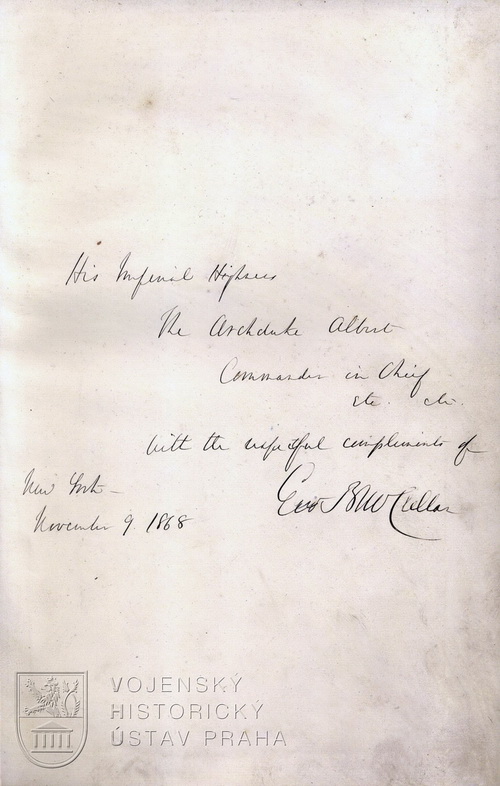 His Imperial Highness
The Archduke Albert
Commander in Chief
etc. etc.
with the respectful compliments of
Geo B McClellan
New York
November 9. 1868
VOJENSKÝ
HISTORICKÝ
ÚSTAV PRAHA